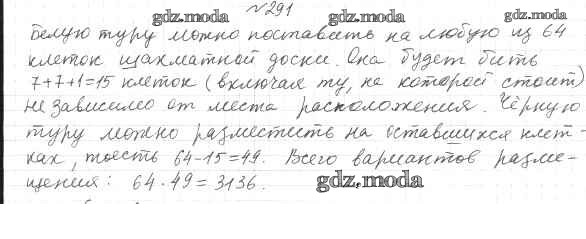 №291
gdz.moda gdz.moda gdz.moda
Белую туру можно поставить на любую из 64
клеток шахматной доски. Она будет бить
7+7+1=15 клеток (включая ту, на которой стоит)
не зависимо от места расположения. Чёрную
туру можно разместить на оставшихся клет-
ках, тоесть 64-15=49. Всего вариантов разме-
щения: 64·49=3136.
gdz.moda